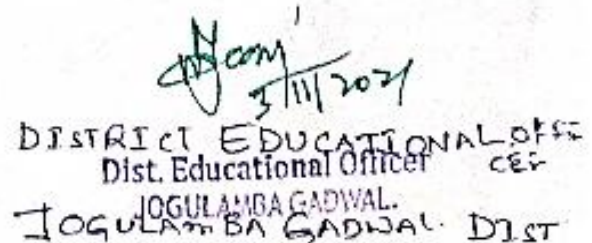 3/11/2021
DISTRICT EDUCATIONAL OFFI
CER
Dist. Educational Officer
JOGULAMBA GADWAL.
JOGULAMBA GADWAL. DIST